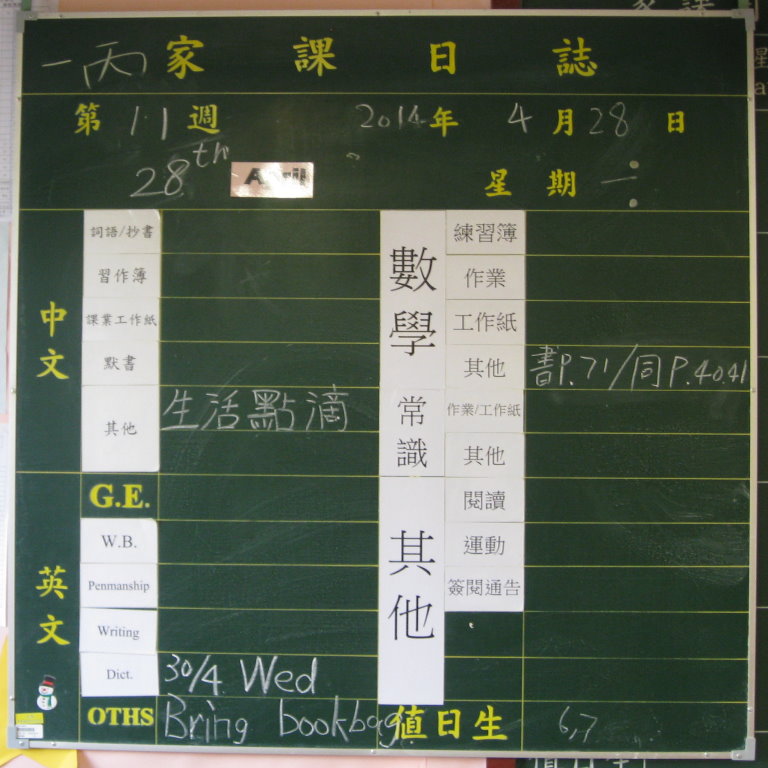 一丙 家課日誌
第 11 週 2014 年 4 月 28 日
28th 星期一
中文
詞語/抄書
習作簿
課業工作紙
默書
其他 生活點滴
英文
G.E.
W.B.
Penmanship
Writing
Dict. 30/4 Wed
OTHS Bring bookbag
數學
練習簿
作業
工作紙
其他 書P.71/同P.40.41
常識
作業/工作紙
其他
其他
閱讀
運動
簽閱通告
值日生 6,7